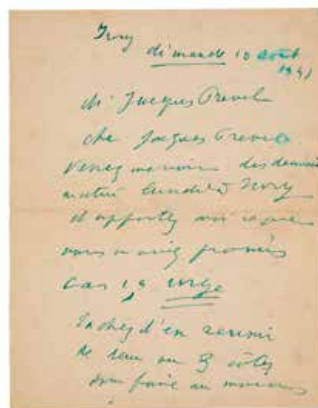 Ivry
dimanche 10 août
194
Mr Jacques Prevel
cher Jacques Prevel
Venez me voir dès demain
matin lundi à Ivry
et apportez moi ce que
vous m'avez promis
car ça urge
Tachez d'en réunir
de deux ou 3 côtés
pour faire au moins